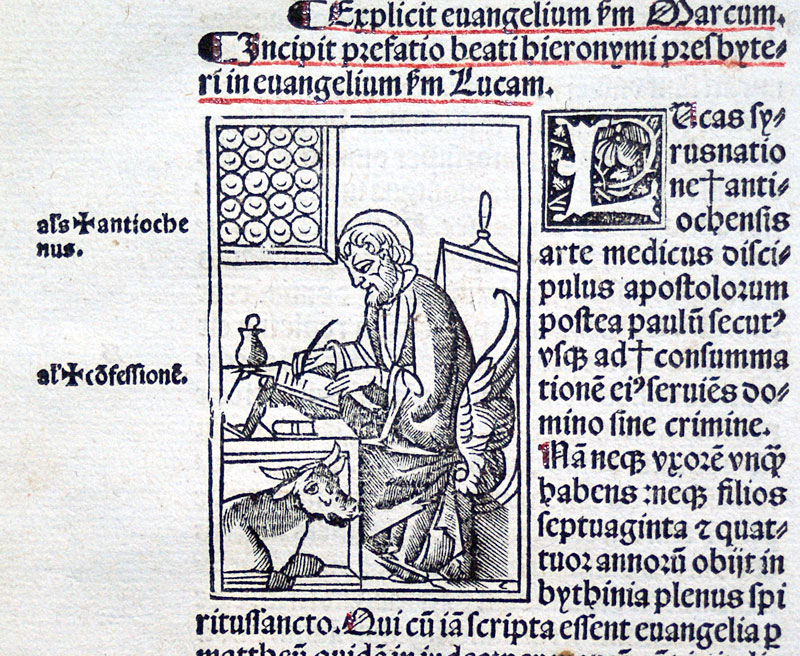 Explicit euangelium ẜm Marcum.
Incipit prefatio beati hieronymi presbyte⸗
ri in euangelium ẜm Lucam.
LUcas sy⸗
rusnatio
ne†anti⸗
ochensis
arte medicus disci⸗
pulus apostolorum
postea paulū secutꝰ
vsqꝫ ad†consumma
tionē eiꝰ seruiēs do⸗
mino sine crimine.
Nā neqꝫ vxorē vnqꝫ̄
habens :neqꝫ filios
septuaginta ⁊ quat⸗
tuor annorū obijt in
bythinia plenus spi
ritussancto. Qui cū iā scripta essent euangelia ꝑ
mattheū quidē in
als✠antioche
nus.
al'✠cōfessionē.